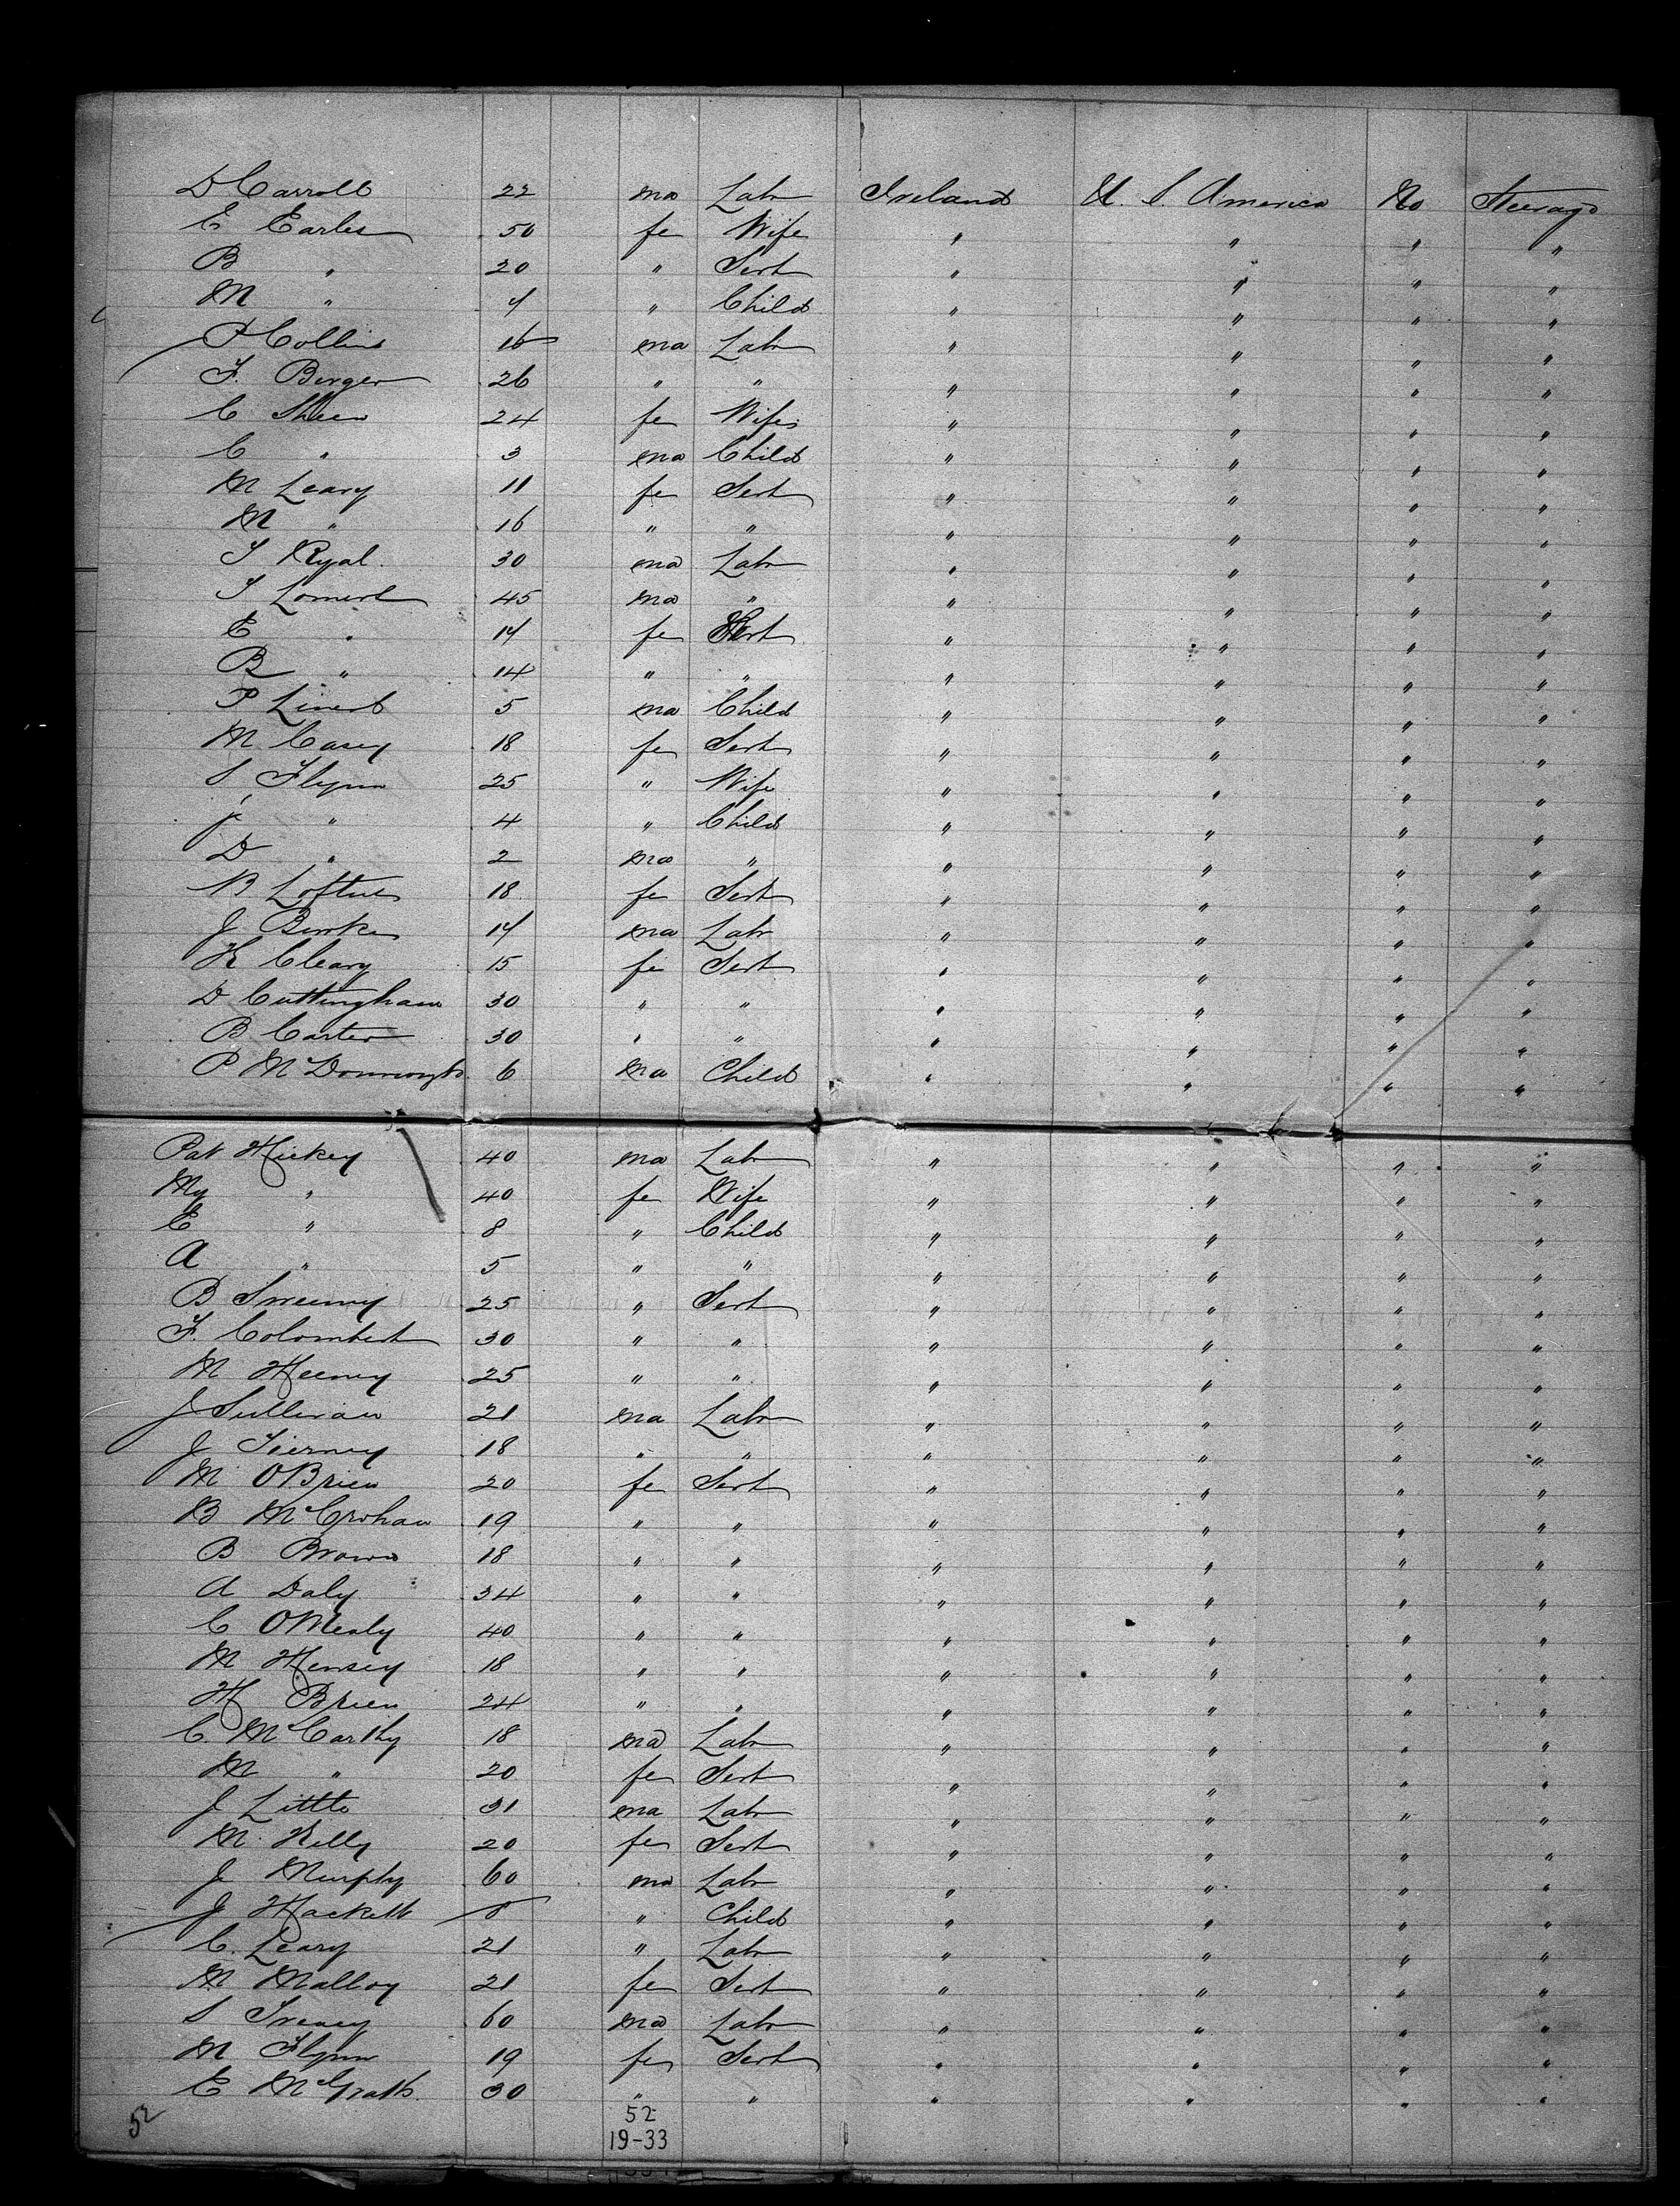 D Carroll 22 ma Labr Ireland U. S. America No Steerage
E Earles 50 fe Wife " " " "
B " 20 " Sert " " " "
M " 4 " Child " " " "
P Collins 16 ma Labr " " " "
F. Berger 26 " " " " " "
C Sheen 24 fe Wife " " " "
C " 3 ma Child " " " "
M Leary 11 fe Sert " " " "
M " 16 " " " " " "
T Ryal. 30 ma Labr " " " "
T 45 ma " " " " "
E " 14 fe Sert " " " "
B " 14 " " " " " "
P 5 ma Child " " " "
M. Casey 18 fe Sert " " " "
S Flynn 25 " Wife " " " "
J " 4 " Child " " " "
D " 2 ma " " " " "
B Loftus 18 fe Sert " " " "
J Burke 14 ma Labr " " " "
K Cleary 15 fe Sert " " " "
D Cuttingham 30 " " " " " "
B Carter 30 " " " " " "
P McDonnough 6 ma Child " " " "
Pat Hickey 40 ma Labr " " " "
My " 40 fe Wife " " " "
E " 8 " Child " " " "
A " 5 " " " " " "
B Sweeney 25 " Sert " " " "
F. Colombert 30 " " " " " "
M Heeney 25 " " " " " "
J Sullivan 21 ma Labr " " " "
J Tierney 18 " " " " " "
M OBrien 20 fe Sert " " " "
B McCrohan 19 " " " " " "
B Brown 18 " " " " " "
A Daly 34 " " " " " "
C ONealy 40 " " " " " "
M Hensey 18 " " " " " "
H Brien 24 " " " " " "
C. McCarthy 18 ma Labr " " " "
M " 20 fe Sert " " " "
J Little 31 ma Labr " " " "
M. Kelly 20 fe Sert " " " "
J Murphy 60 ma Labr " " " "
J Hackett 8 " Child " " " "
C. Leary 21 " Labr " " " "
M Malloy 21 fe Sert " " " "
S 60 ma Labr " " " "
M Flynn 19 fe Sert " " " "
E McGrath. 30 " " " " " "
52 52
19-33